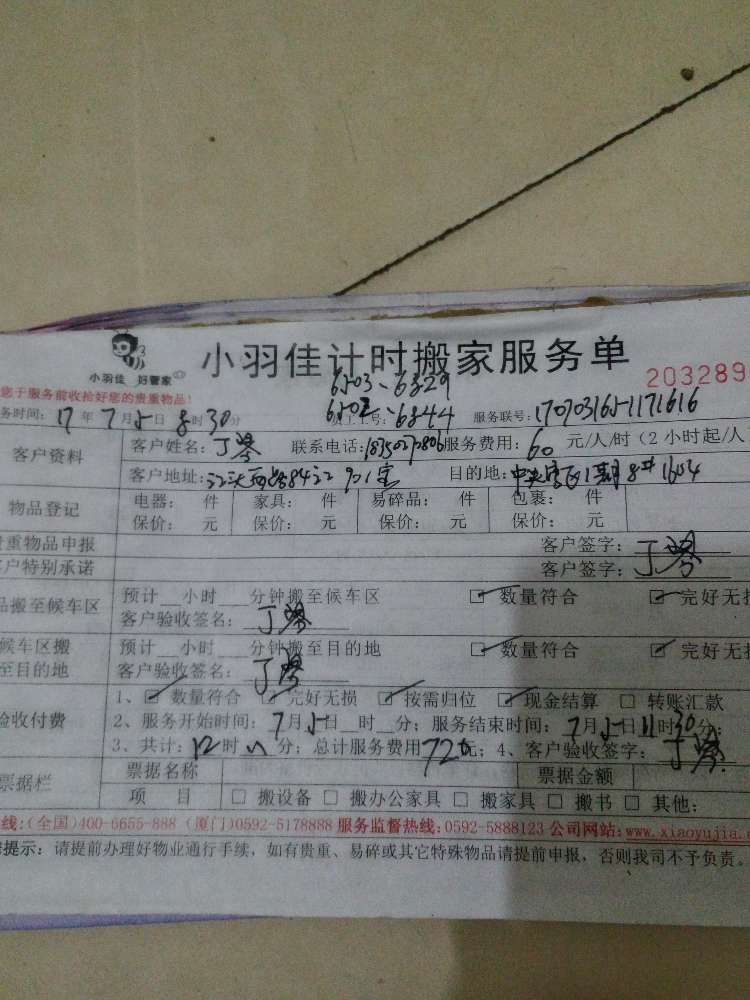 小羽佳 好管家
小羽佳计时搬家服务单
203289
您于服务前收拾好您的贵重物品!
6503、6829
务时间: 17年7月5日8时30分 员工工号: 6502、6844 服务联号: 17070316511171616
客户资料
客户姓名: 丁琴 联系电话: 服务费用: 60 元/人/时(2小时起/人
客户地址: 目的地: 1期8#1604
物品登记
电器: 件 家具: 件 易碎品: 件 包裹: 件
保价: 元 保价: 元 保价: 元 保价: 元
贵重物品申报 客户签字: 丁琴
客户特别承诺 客户签字:
品搬至候车区
预计__小时__分钟搬至候车区 ☑数量符合 ☑完好无损
客户验收签名: 丁琴
候车区搬
至目的地
预计__小时__分钟搬至目的地 ☑数量符合 ☑完好无损
客户验收签名: 丁琴
验收付费
1、☑数量符合 ☑完好无损 ☑按需归位 ☑现金结算 □转账汇款
2、服务开始时间: 7月5日__时__分; 服务结束时间: 7月5日11时30分;
3、共计: 12时 分; 总计服务费用720元; 4、客户验收签字: 丁琴
票据栏
票据名称 票据金额
项 目 □搬设备 □搬办公家具 □搬家具 □搬书 □其他:
线:(全国)400-6655-888 (厦门)0592-5178888 服务监督热线:0592-5888123 公司网站:www.xiaoyujia.
提示: 请提前办理好物业通行手续,如有贵重、易碎或其它特殊物品请提前申报,否则我司不予负责。